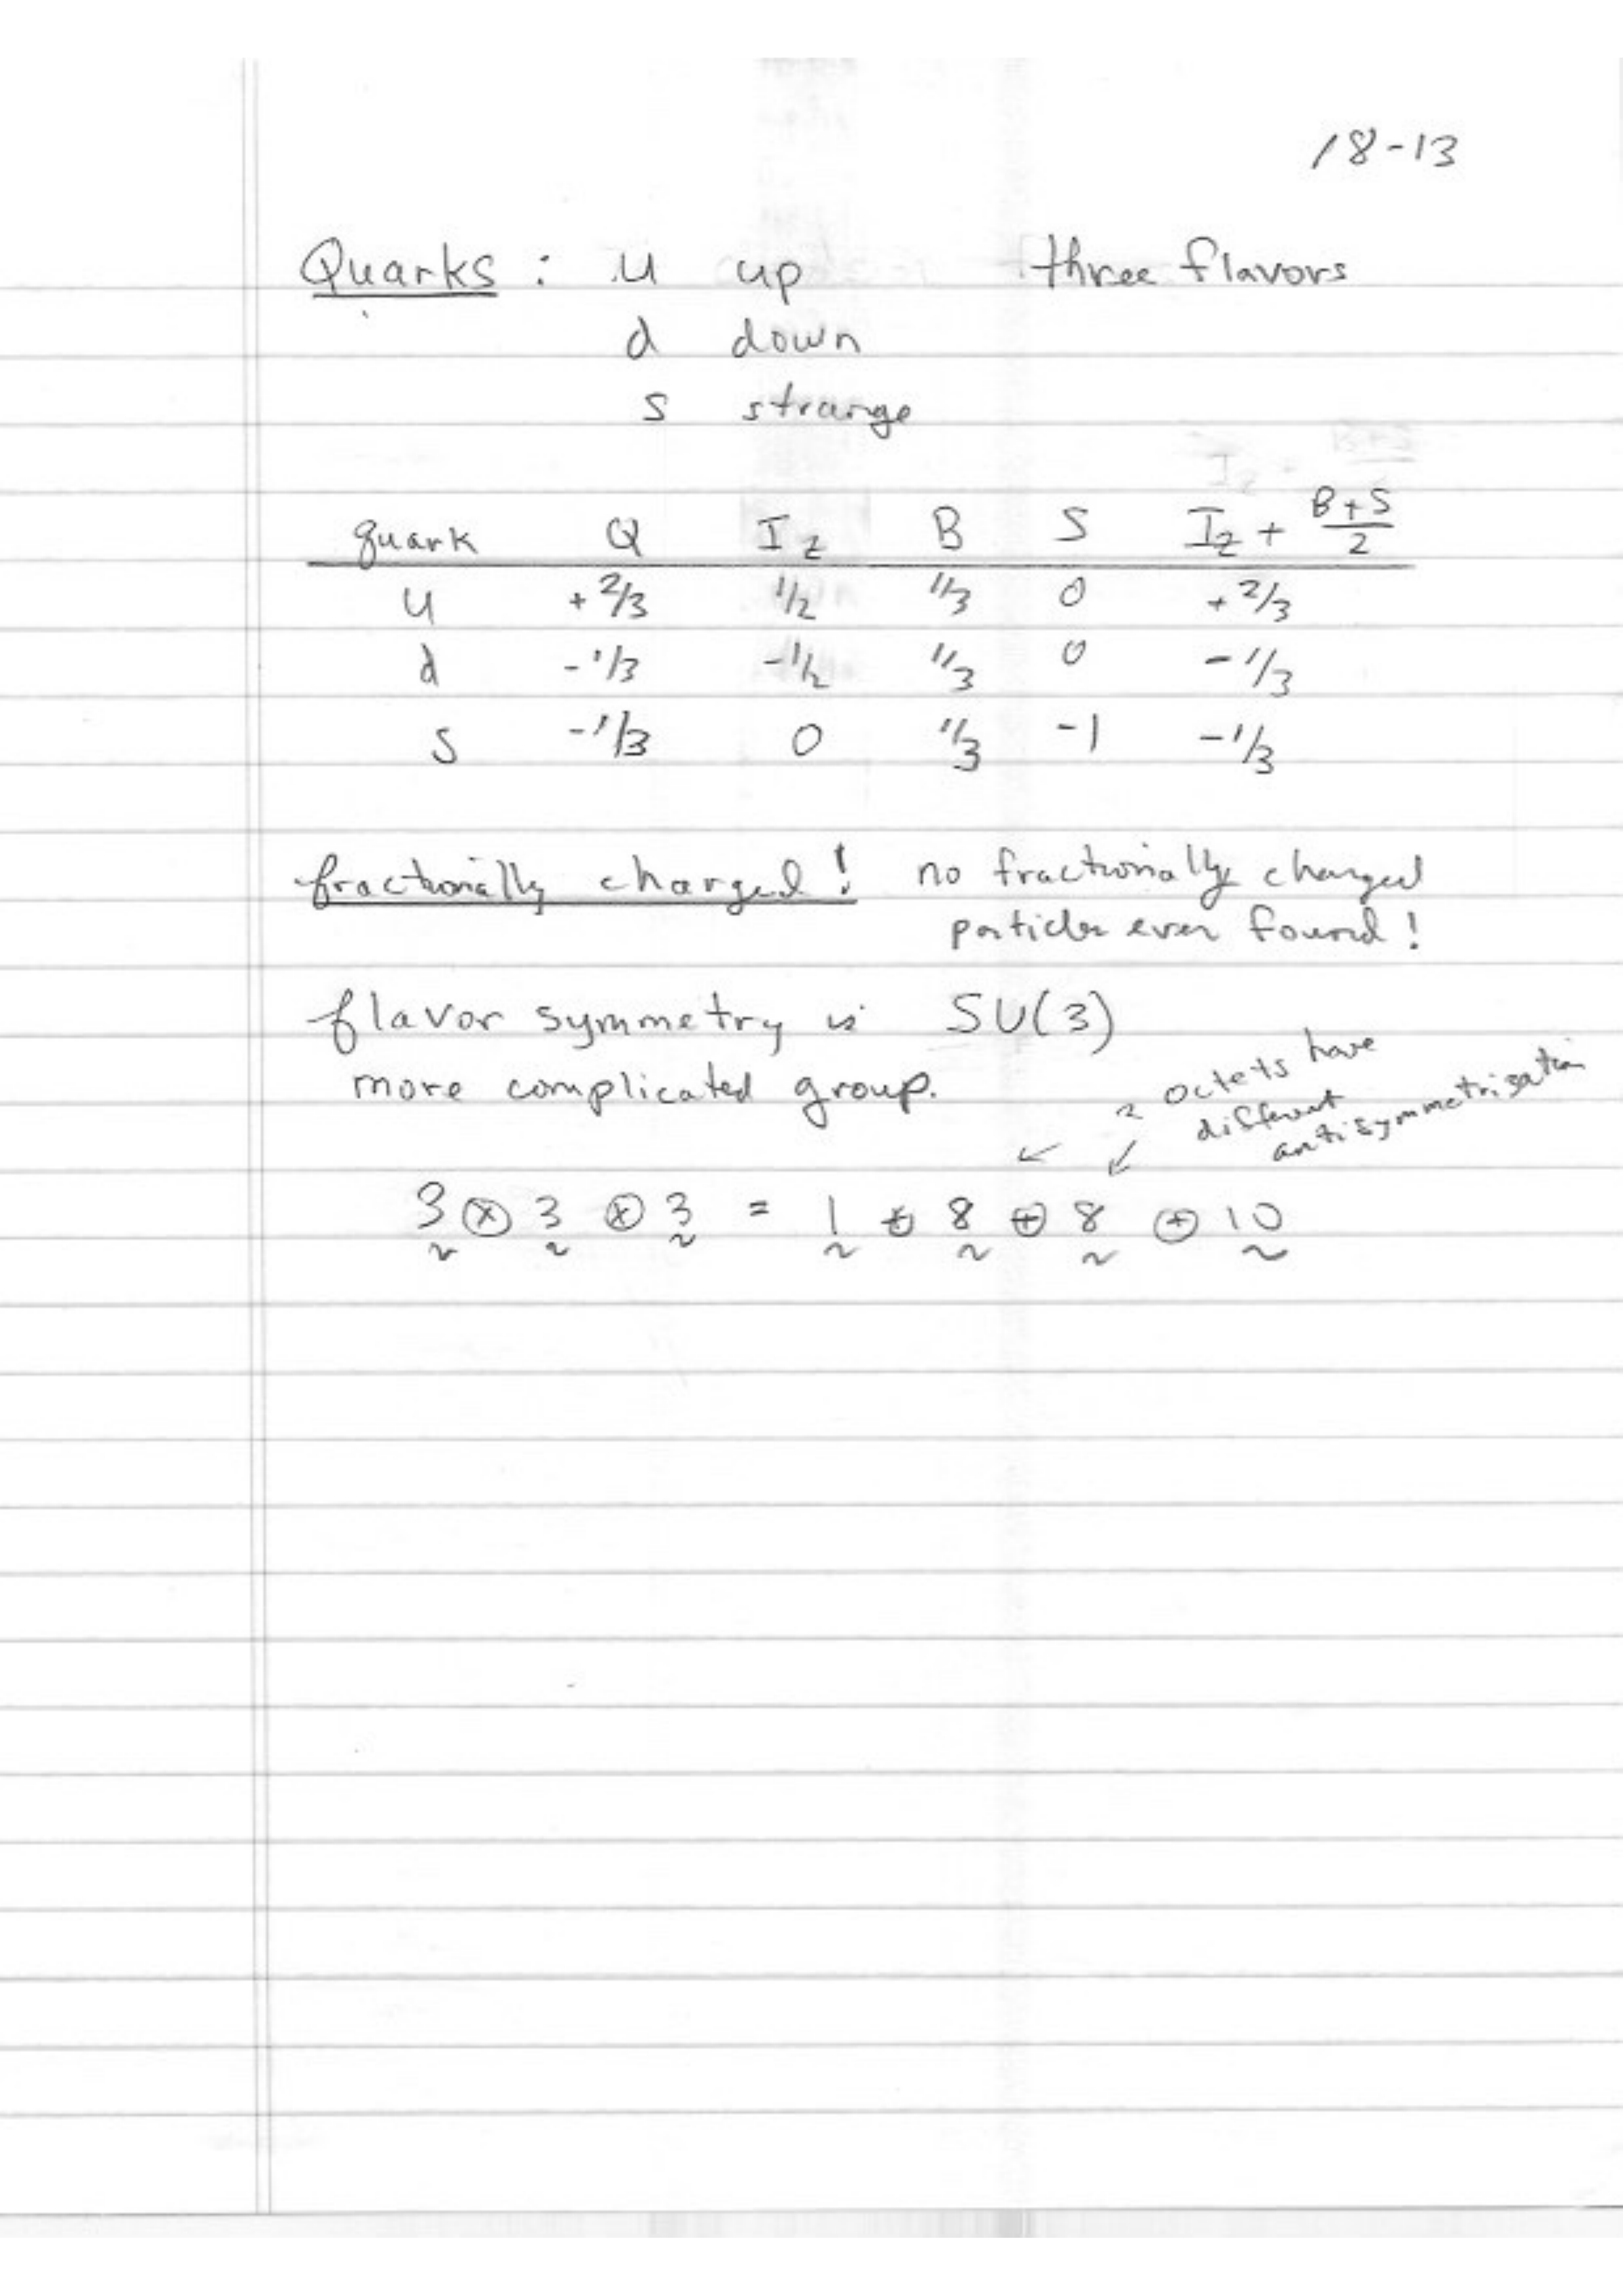 18-13
Quarks : u up three flavors
d down
s strange
quark Q I_z B S I_z + (B+S)/2
u +2/3 1/2 1/3 0 +2/3
d -1/3 -1/2 1/3 0 -1/3
s -1/3 0 1/3 -1 -1/3
fractionally charged! no fractionally charged
particles ever found!
flavor symmetry is SU(3)
more complicated group.
2 octets have
different
antisymmetrization
↙ ↙
3 ⊗ 3 ⊗ 3 = 1 ⊕ 8 ⊕ 8 ⊕ 10